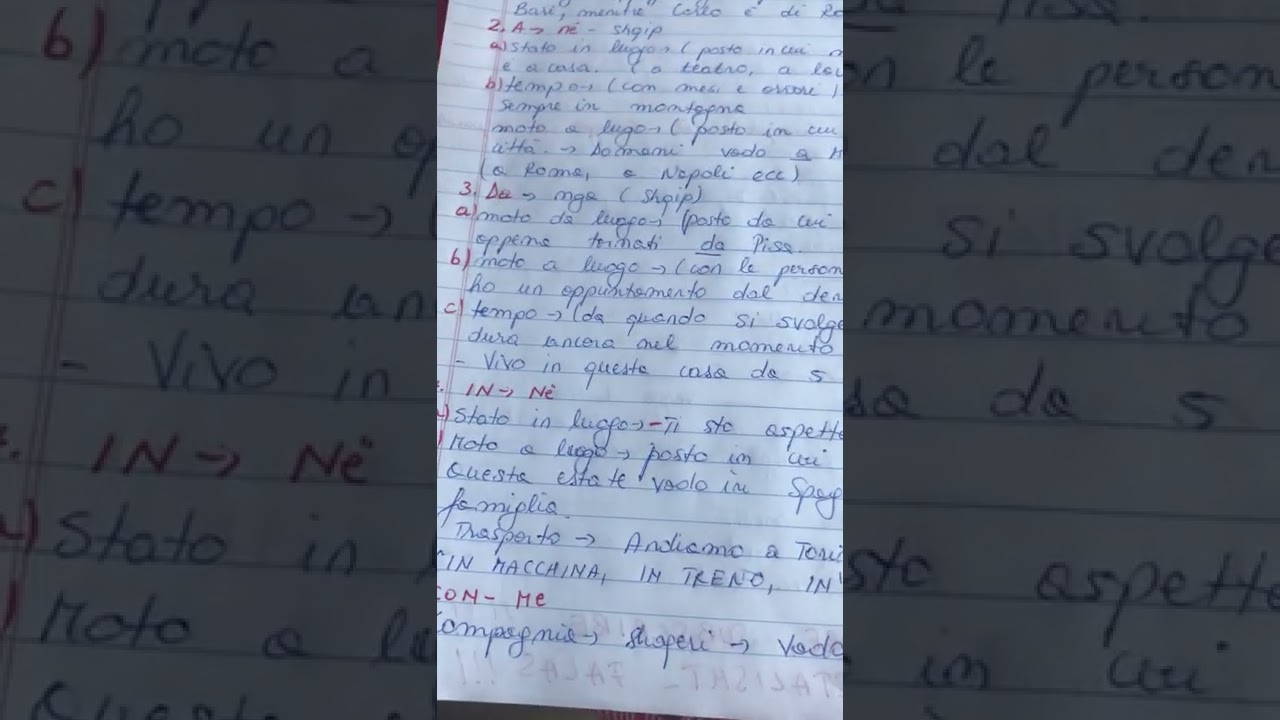 Bari, mentre Carlo è di Ro
2. A → në - shqip
a) stato in luogo → ( posto in cui
e a casa. ( a teatro, a
b) tempo → (con mesi e
sempre in montagna
moto a lugo → ( posto in cu
città. → Domani vado a
( a Roma, a Napoli ecc)
3. Da → nga ( shqip)
a) moto da luogo → (posto da cui
appena tornati da Pisa.
b) moto a luogo → (con le person
ho un appuntamento dal den
c) tempo → (da quando si svolge
dura ancora nel momento
- Vivo in questa casa da 5
IN → Në
Stato in luogo → - Ti sto aspette
Moto a luogo → posto in cui
Questa estate vado in Spag
famiglia.
Trasporto → Andiamo a Tori
IN MACCHINA, IN TRENO, IN
CON - Me
Compagnia → shoqëri → Vado